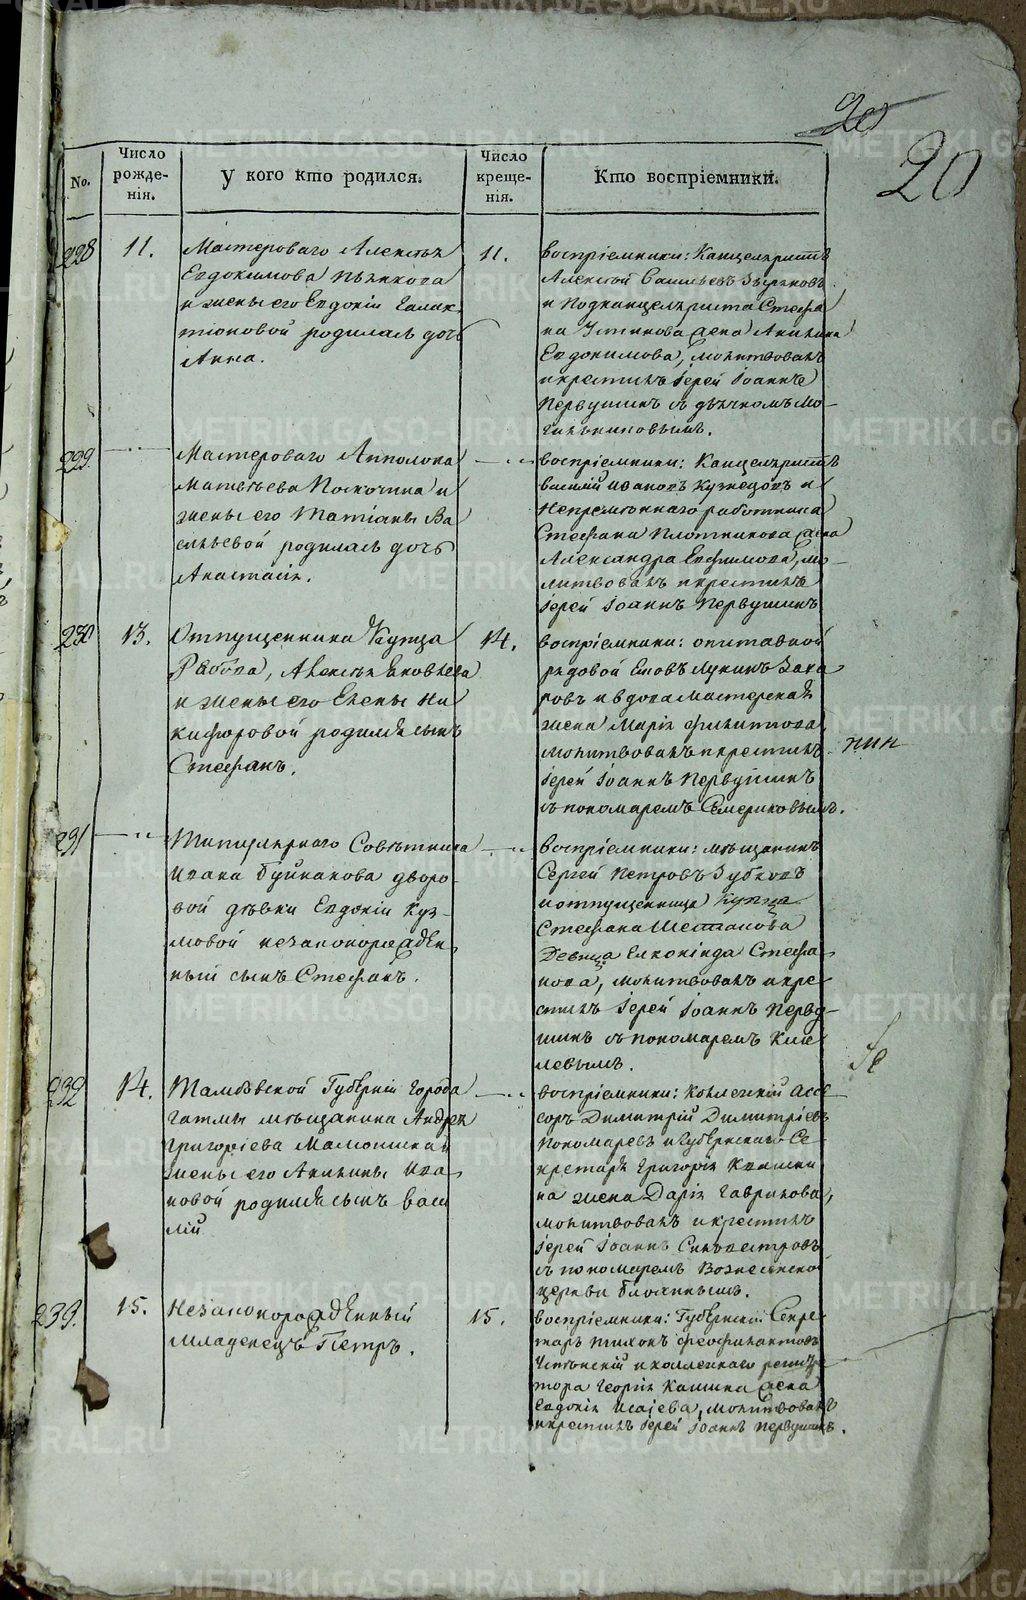 20
20
No.
Число рожденія.
У кого кто родился.
Число крещенія.
Кто воспріемники.
228
11.
Мастероваго Алексѣя
Евдокимова Пьянкова
и жены его Евдокіи Галак
тіоновой родилась дочь
Анна.
11.
воспріемники: Канцеляристъ
Алексѣй Васильевъ
и Подканцеляриста Стефа
на Устинова жена Акилина
Евдокимова, молитвовалъ
и крестилъ Іерей Іоаннъ
Первушинъ съ дьячкомъ Мо
гильниковымъ.
229
Мастероваго Апполона
Матвѣева Поскочина и
жены его Татіаны Ва
сильевой родилась дочь
Анастасія.
воспріемники: Канцеляристъ
василій ивановъ Кузнецовъ и
Непремѣннаго работника
Стефана Плотникова жена
Александра Евфимова, мо
литвовалъ и крестилъ
Іерей Іоаннъ Первушинъ
230
13.
Отпущенника Купца
Рябова, Алексѣя Яковлева
и жены его Елены Ни
кифоровой родился сынъ
Стефанъ.
14.
воспріемники: отставной
рядовой Іовъ Лукинъ Заха
ровъ и вдова мастерская
жена Марія Филитова
молитвовалъ и крестилъ
Іерей Іоаннъ Первушинъ
съ пономаремъ Семериковымъ.
нин
231
Титулярнаго Совѣтника
Ивана Буйнакова дворо
вой дѣвки Евдокіи Куз
мовой незаконорожден
ный сынъ Стефанъ.
воспріемники: мѣщанинъ
Сергей Петровъ Зубковъ
и отпущенница Купца
Стефана Шесталова
Девица Елконіда Стефа
нова, молитвовалъ и кре
стилъ Іерей Іоаннъ Перву
шинъ съ пономаремъ Кисе
левымъ.
232
14.
Тамбовской Губерніи города
мѣщанина Андрея
Григоріева Малюшина и
жены его Акилины Ива
новой родился сынъ васи
лій
воспріемники: Коллежскій Ассе
соръ Димитрій Димитріевъ
Пономаревъ и Губернскаго Се
кретаря Григорія Квашни
на жена Дарія Гаврилова,
молитвовалъ и крестилъ
Іерей Іоаннъ Сильвестровъ
съ пономаремъ Вознесенской
церкви Блохинымъ.
233.
15.
Незаконорожденный
младенецъ Петръ.
15.
воспріемники: Губернскій Секре
тарь Тихонъ Феофилактовъ
Успенскій и коллежскаго регистра
тора Георгія Кашина жена
Евдокія Исаіева, молитвовалъ
и крестилъ Іерей Іоаннъ Первушинъ.
METRIKI.GASO-URAL.RU